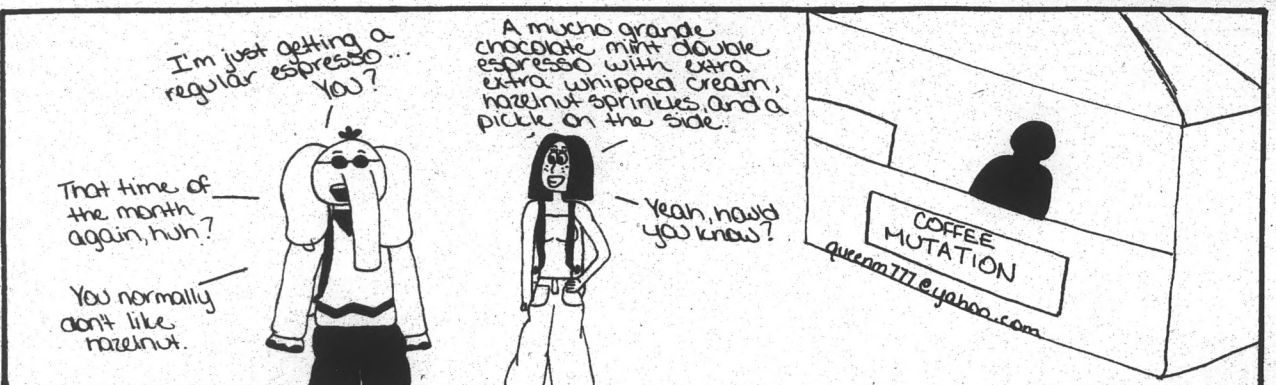 I'm just getting a
regular espresso...
You?
A mucho grande
chocolate mint double
espresso with extra
extra whipped cream,
hazelnut sprinkles, and a
pickle on the side.
That time of
the month
again, huh?
Yeah, how'd
you know?
You normally
don't like
hazelnut.
COFFEE
MUTATION
queenm777@yahoo.com